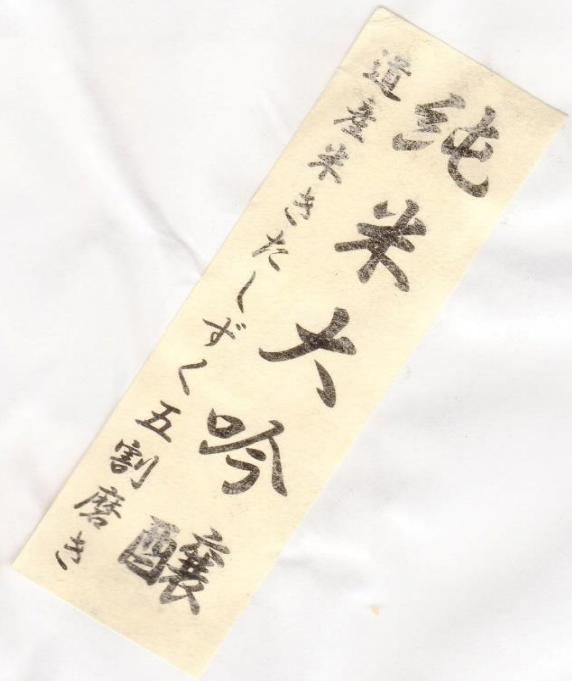 純米大吟醸
道産米きたしずく五割磨き